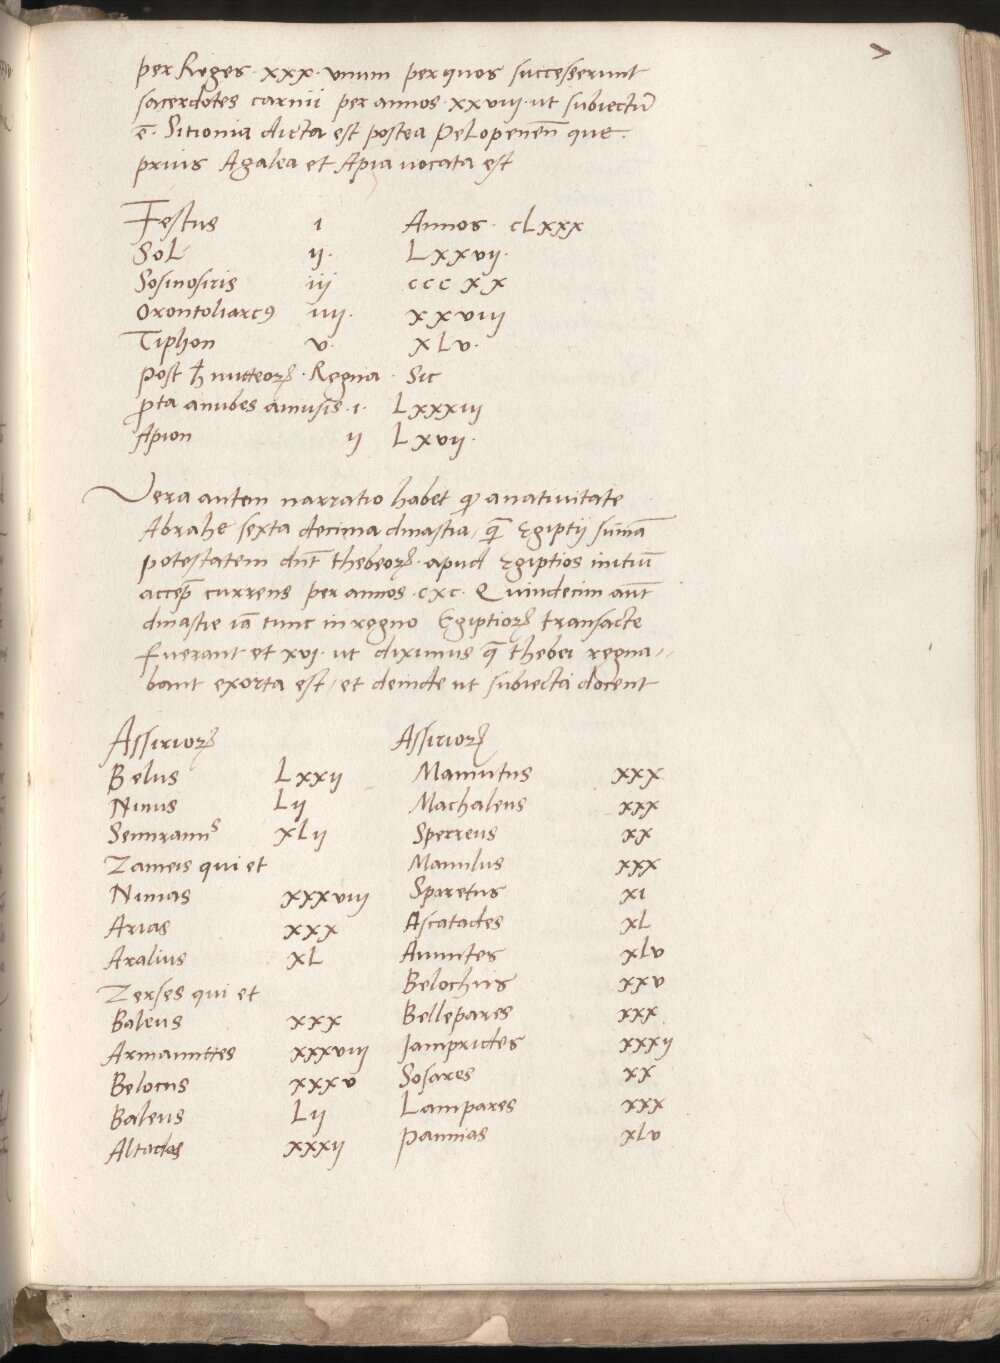 >
per Reges · xxx · vnum per quos successerunt
sacerdotes carnii per annos · xxviii · ut subiectū
ē · Sitionia dicta est postea Pelopeneñ que ·
prius Agalea et Apia uocata est
Festus i Annos · cLxxx
Sol ii · Lxxvii ·
Sosinosiris iii ccc xx
Orontoliarcꝯ iiii · xxviii
Tiphon v · xLv ·
post nitteoꝝ · Regna · Sic
pta anubes amusis · i · Lxxxiii
Apion ii Lxvii ·
Vera autem narratio habet ꝙ a natiuitate
Abrahe sexta decima dinastia, q̄ Egiptij sūmā
potestatem dñt thebeoꝝ · apud Egiptios initiū
accep̄ currens per annos · cxc · Quindecim aūt
dinastie iā tunc in regno Egiptioꝝ transacte
fuerant et xvi · ut diximus q̄ thebei regna,,
bant exorta est, et deinde ut subiecta docent
Assirioꝝ
Belus Lxxii
Ninus Lii
Semiramis xLii
Zameis qui et
Ninias xxxviii
Arias xxx
Aralius xL
Zerses qui et
Baleus xxx
Armamittes xxxviii
Belocus xxxv
Baleus Lii
Altadas xxxii
Assirioꝝ
Mamitus xxx
Machaleus xxx
Sperreus xx
Mamilus xxx
Sparetus xi
Ascatades xL
Amintes xlv
Belochus xxv
Bellepares xxx
Iamprides xxxii
Sosares xx
Lampares xxx
Pannias xlv